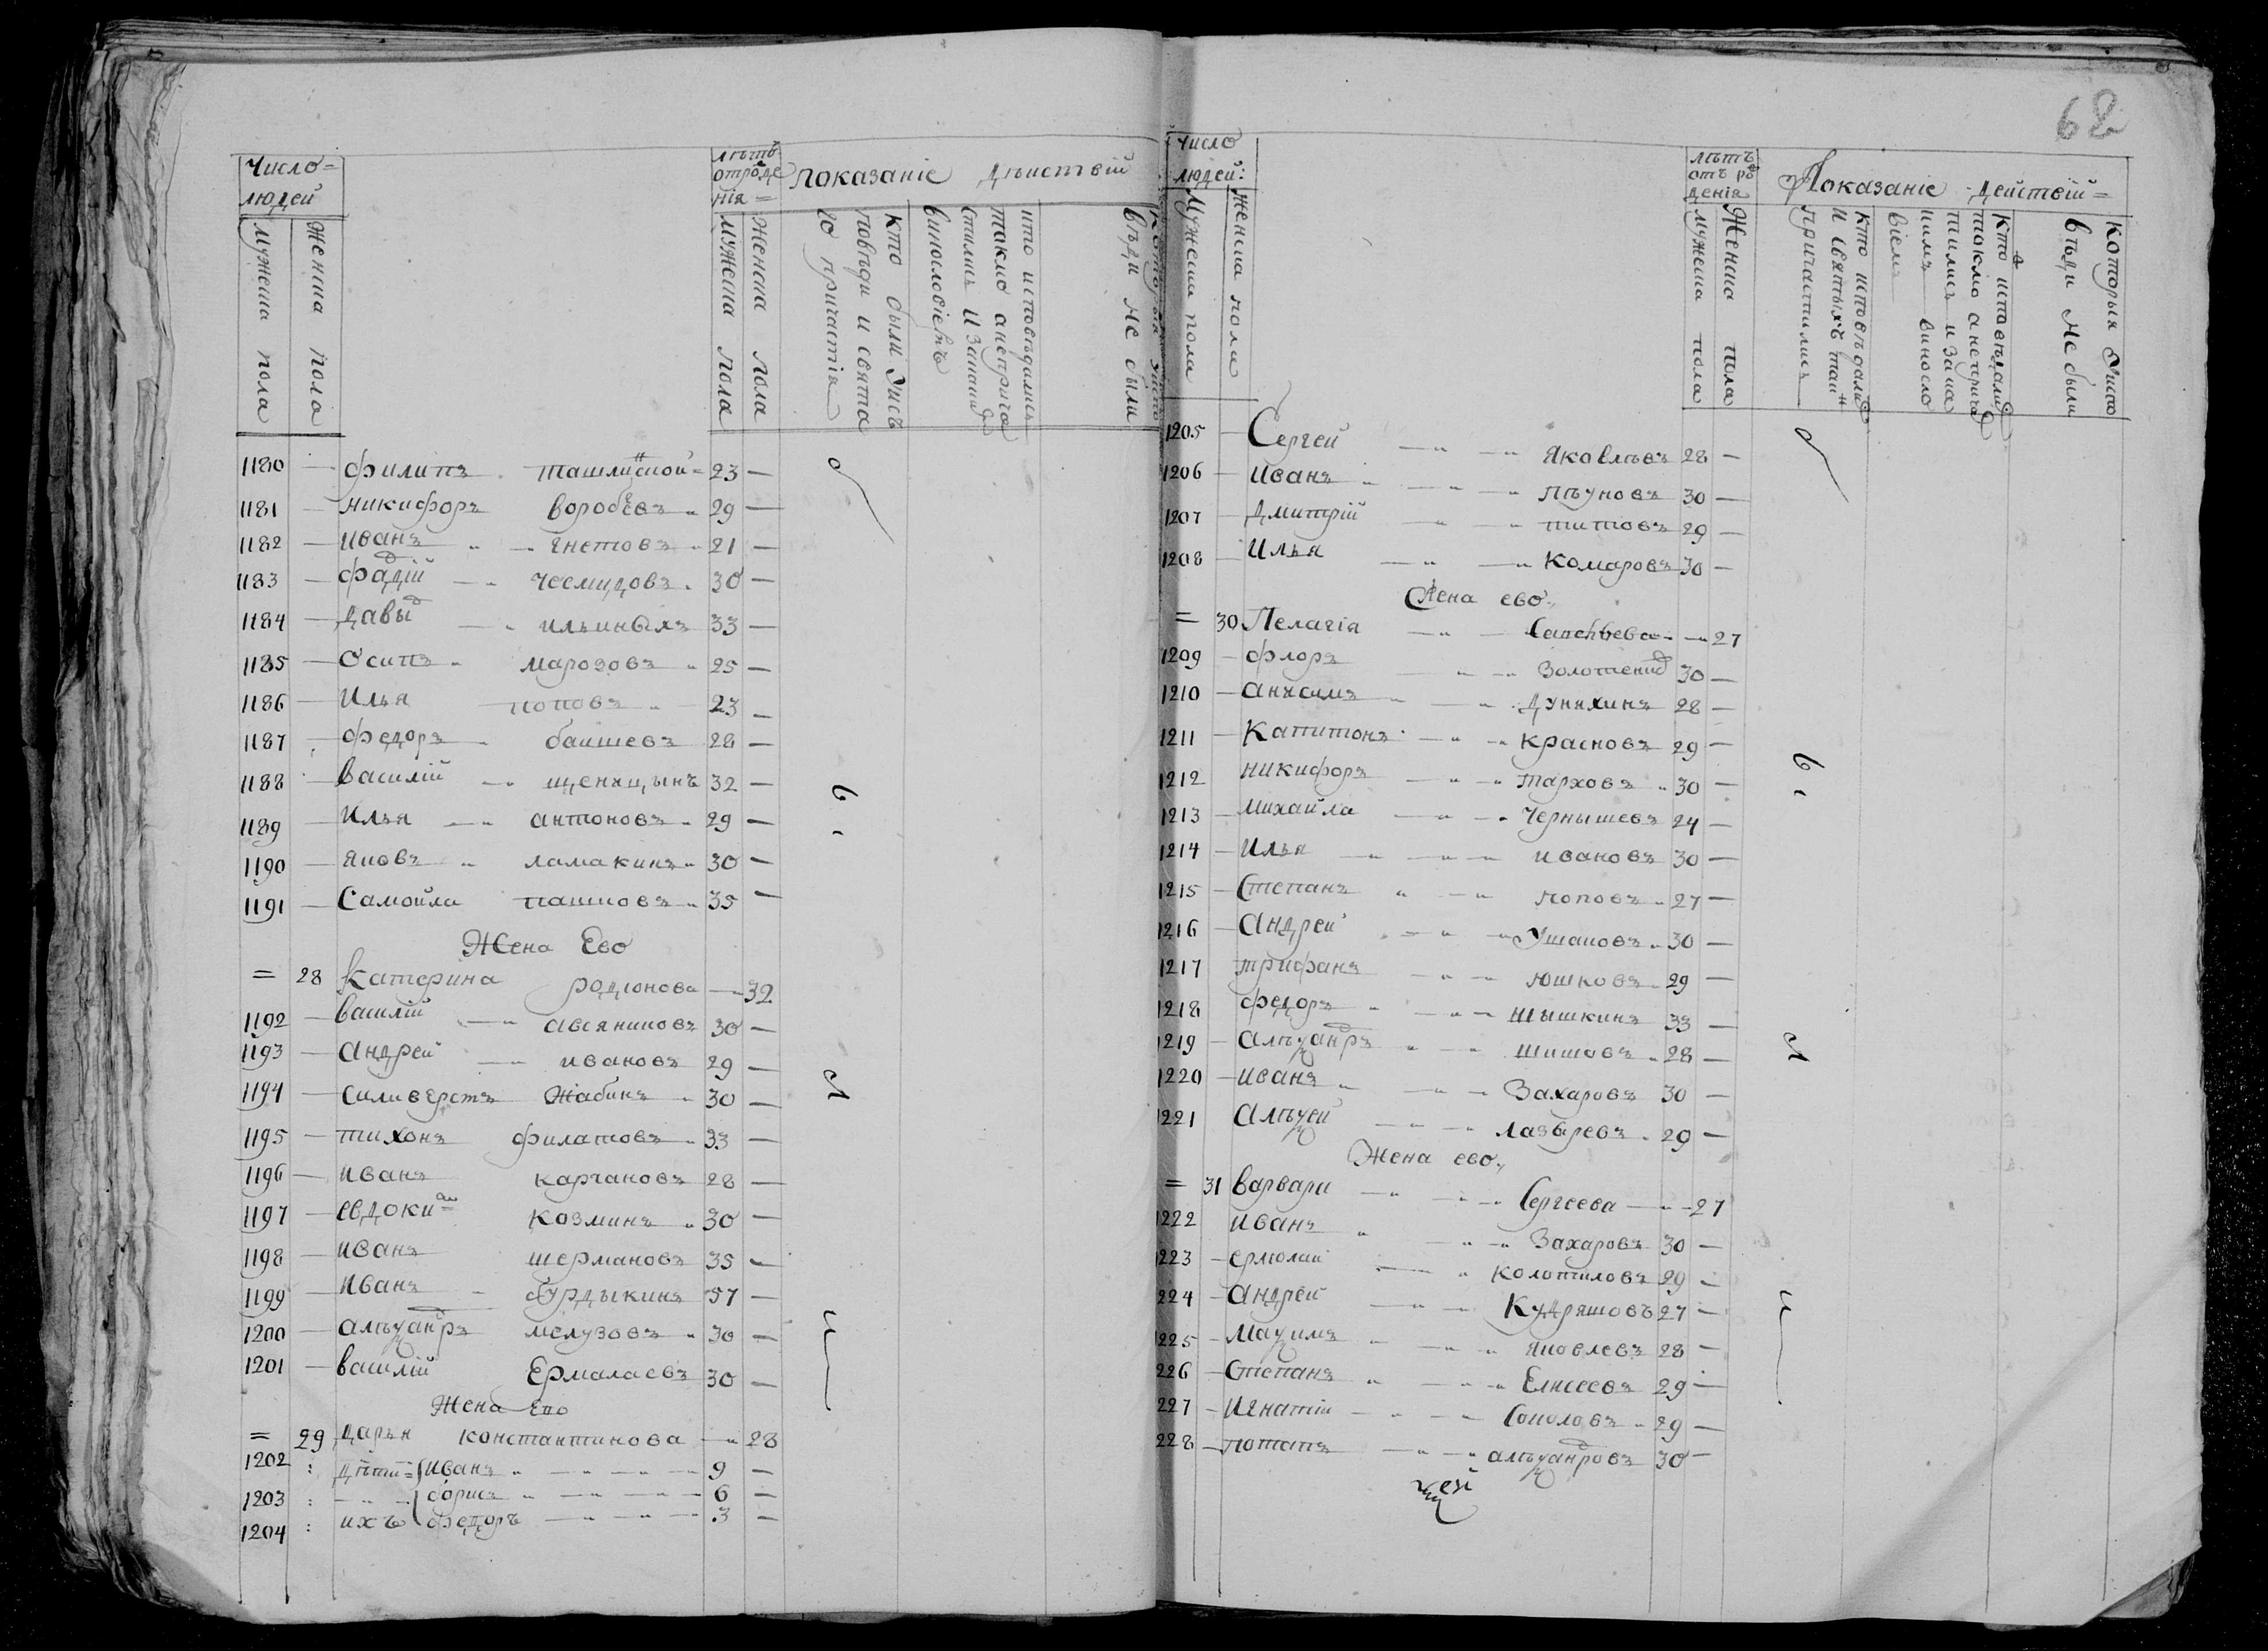 Число=
людей
Мужеска пола
Женска пола
лѣтъ
отроде
нія=
мужеска пола
женска пола
показаніе дѣиствій
кто были Уисъ
повѣди и свята
го причастія
что исповѣдались
токмо анеприча
стились И Закаки
винословіемъ
Которыя Уиспо
вѣди не были
1180 — филипъ ташлинской = 23 —
1181 — никифоръ воробьевъ 29 —
1182 — иванъ гнетовъ 21 —
1183 — фадѣй 30 —
1184 — Давыд ильиныхъ 33 —
1185 — Осипъ марозовъ 25 —
1186 — Илья поповъ 23 —
1187 — федоръ баишевъ 28 —
1188 — василій щеняцынъ 32 —
1189 — Илья антоновъ 29 —
1190 — яковъ ламакинъ 30 —
1191 — Самойла пашковъ 35 —
Жена Ево
= 28 Катерина родионова — 32
1192 — василій авсяниковъ 30 —
1193 — Андрей ивановъ 29 —
1194 — силиверстъ Жабинъ 30 —
1195 — тихонъ филатовъ 33 —
1196 — иванъ карчановъ 28 —
1197 — евдоким козминъ 30 —
1198 — иванъ шермановъ 35 —
1199 — Иванъ бурдыкинъ 57 —
1200 — алѣѯандръ мелузовъ 30 —
1201 — василій Ермалаевъ 30 —
Жена Ево
= 29 Дарья константинова — 28
1202 : дѣти = иванъ 9 —
1203 : борисъ 6 —
1204 : ихъ федоръ 3 —
62
число
людей:
Мужеска пола
женска пола
лѣтъ
отъ ро
денія
мужеска пола
Женска пола
Показаніе действій=
кто исповѣдали
и святыхъ таи
причастились
Кто исповѣдали
токмо анеприча
тились и Зака
кимъ виносло
віемъ
Которыя Уиспо
вѣди не были
1205 — Сергей Яковлѣвъ 28 —
1206 — Иванъ пѣуновъ 30 —
1207 — Дмитрій титовъ 29 —
1208 — Илья Комаровъ 30 —
Жена ево
= 30 Пелагія Савельева — 27
1209 — флоръ Золотенкд 30 —
1210 — анисимъ дуняхинъ 28 —
1211 — Капитонъ красновъ 29 —
1212 никифоръ тарховъ 30 —
1213 — Михайла Чернышевъ 24 —
1214 — Илья ивановъ 30 —
1215 — Степанъ поповъ 27 —
1216 — Андрей Ушаковъ 30 —
1217 — трифанъ юшковъ 29 —
1218 — федоръ шышкинъ 33 —
1219 — Алѣѯандръ шишовъ 28 —
1220 — иванъ Захаровъ 30 —
1221 Алѣѯей лазыревъ 29 —
Жена ево
= 31 варвара Сергеева — 27
1222 иванъ Захаровъ 30 —
1223 — ермолай колотиловъ 29 —
1224 — Андрей Кудряшовъ 27 —
1225 — Маѯимъ яковлевъ 28 —
1226 — Степанъ Елисеевъ 29 —
1227 — Игнатій Соколовъ 29 —
1228 — потапъ алѣѯандровъ 30 —